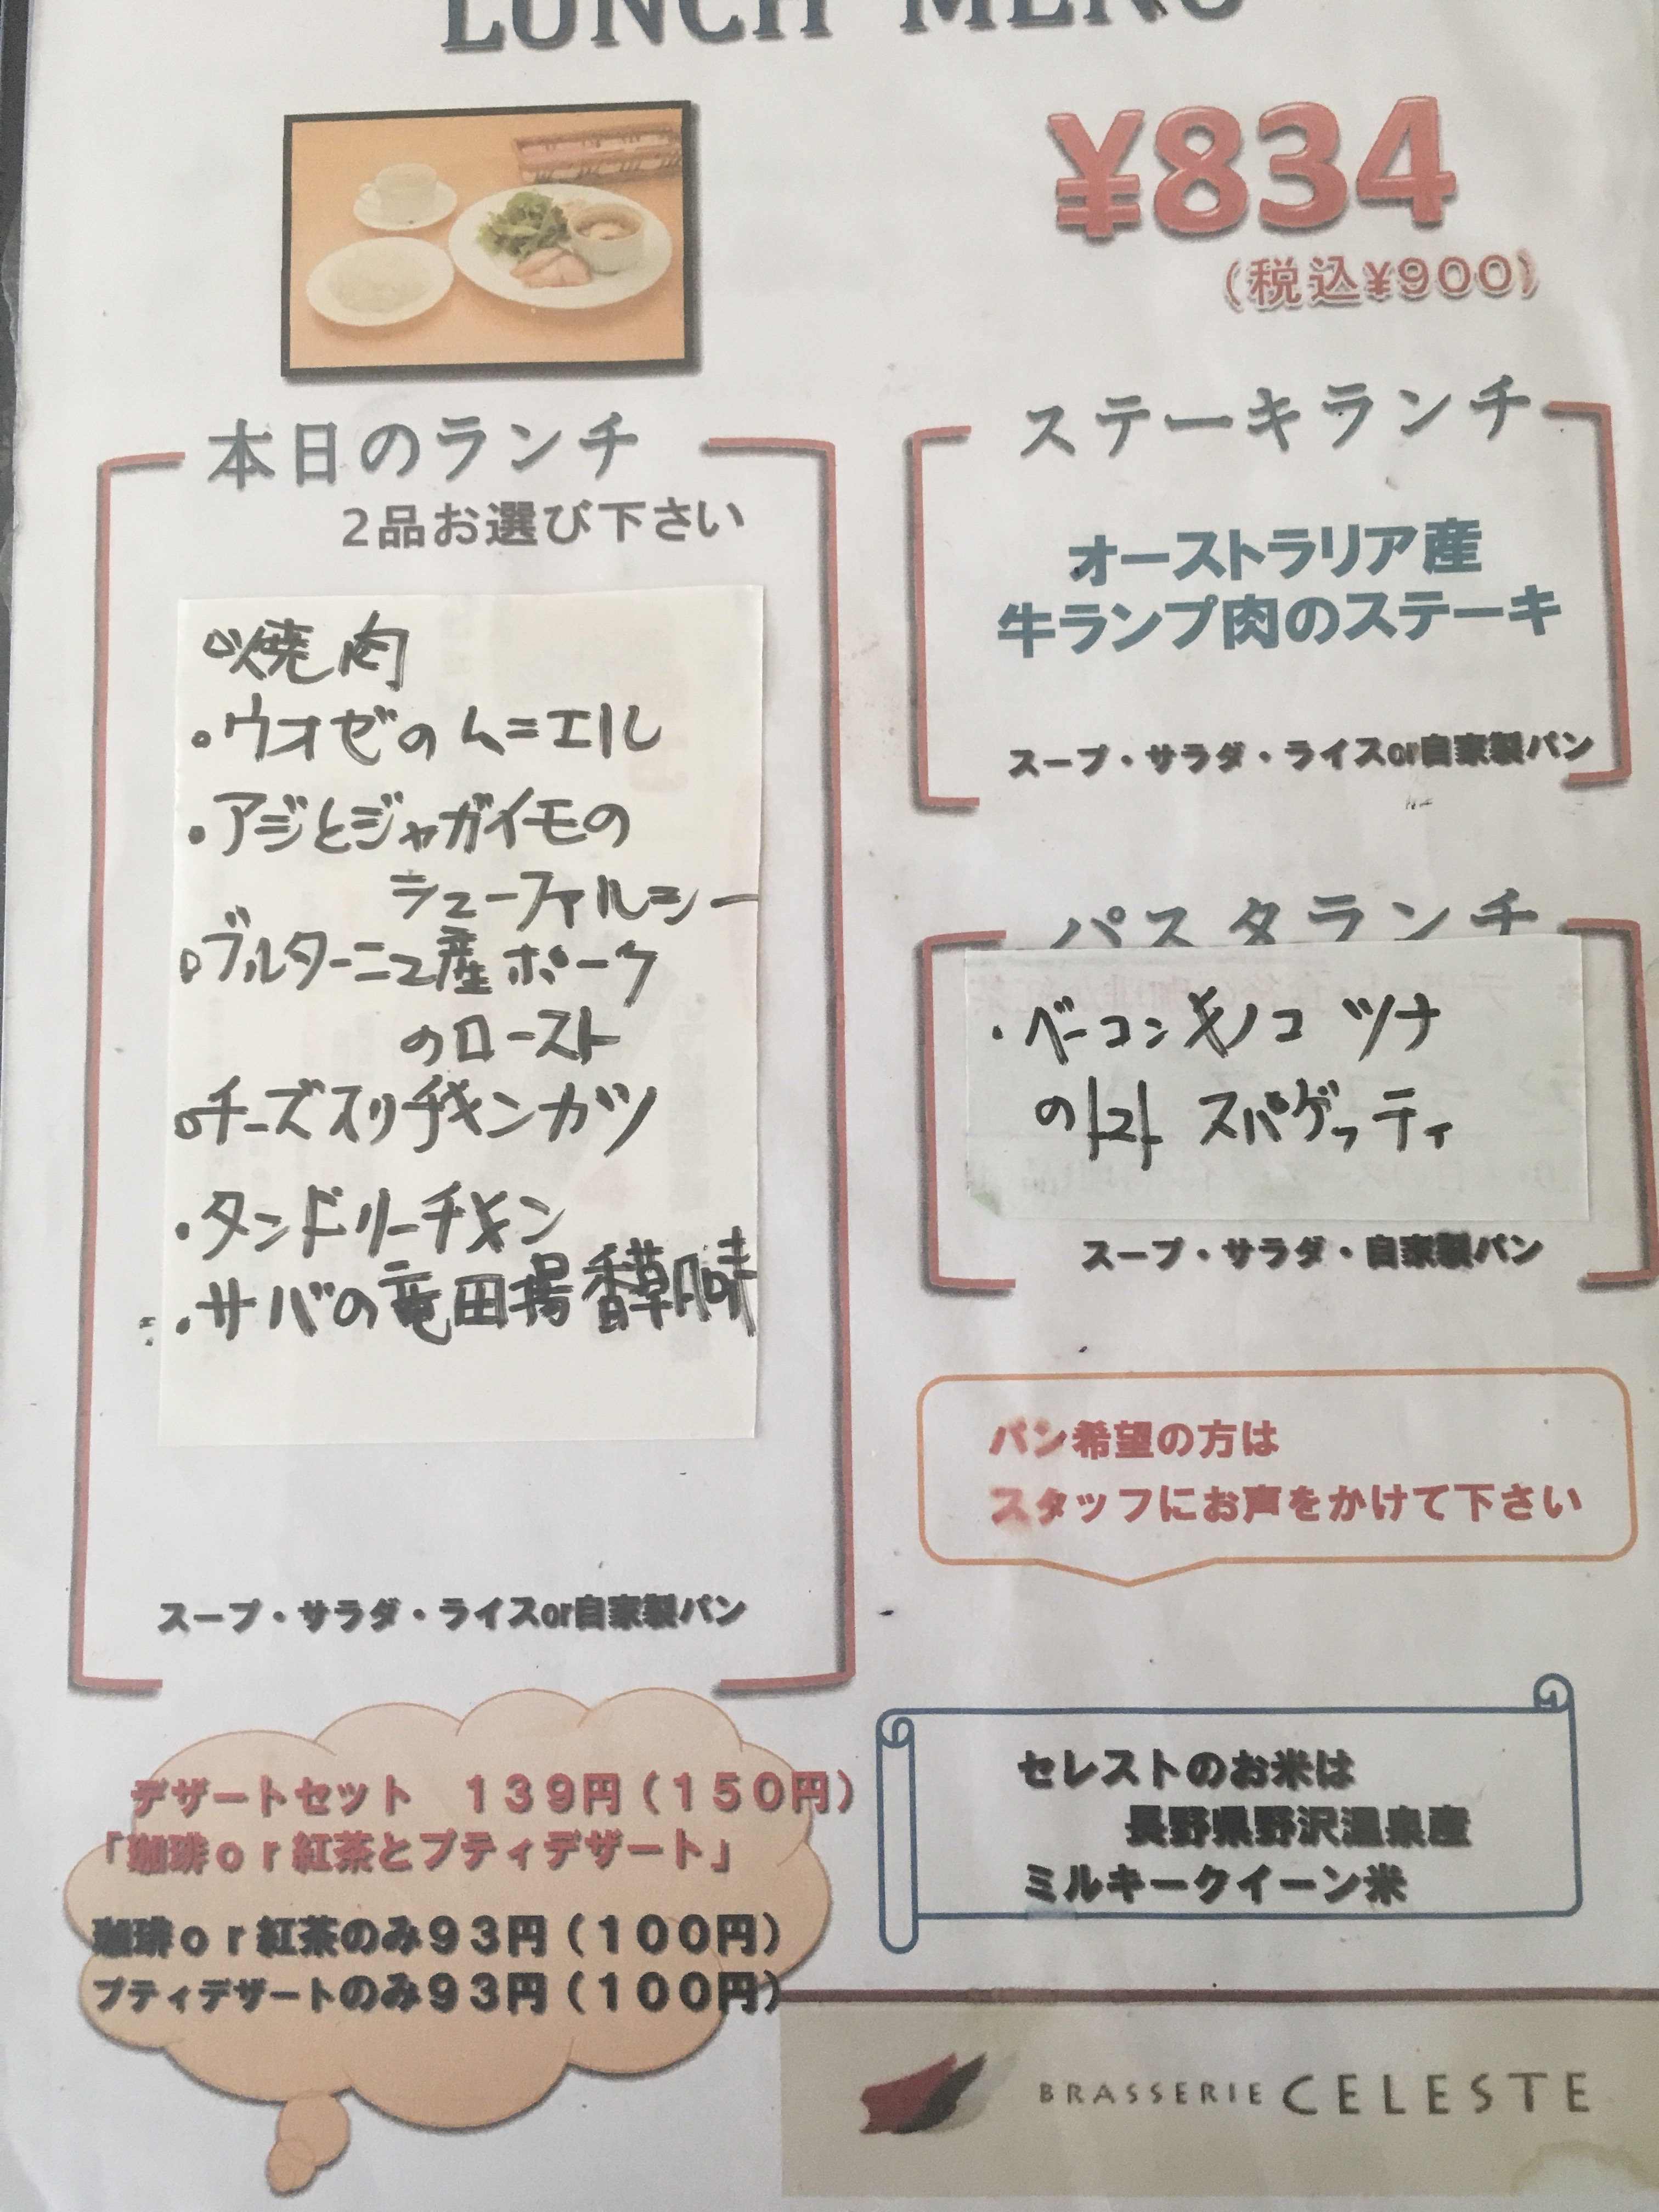 LUNCH MENU
¥834
(税込¥900)
本日のランチ
2品お選び下さい
焼肉
・ウオゼのムニエル
・アジとジャガイモの
シューファルシー
ブルターニュ産ポーク
のロースト
チーズ入りチキンカツ
・タンドリーチキン
・サバの竜田揚香草風味
スープ・サラダ・ライスor自家製パン
ステーキランチ
オーストラリア産
牛ランプ肉のステーキ
スープ・サラダ・ライスor自家製パン
パスタランチ
・ベーコン キノコ ツナ
のトマト スパゲッティ
スープ・サラダ・自家製パン
パン希望の方は
スタッフにお声をかけて下さい
デザートセット 139円(150円)
「珈琲or紅茶とプティデザート」
珈琲or紅茶のみ93円(100円)
プティデザートのみ93円(100円)
セレストのお米は
長野県野沢温泉産
ミルキークイーン米
BRASSERIE CELESTE